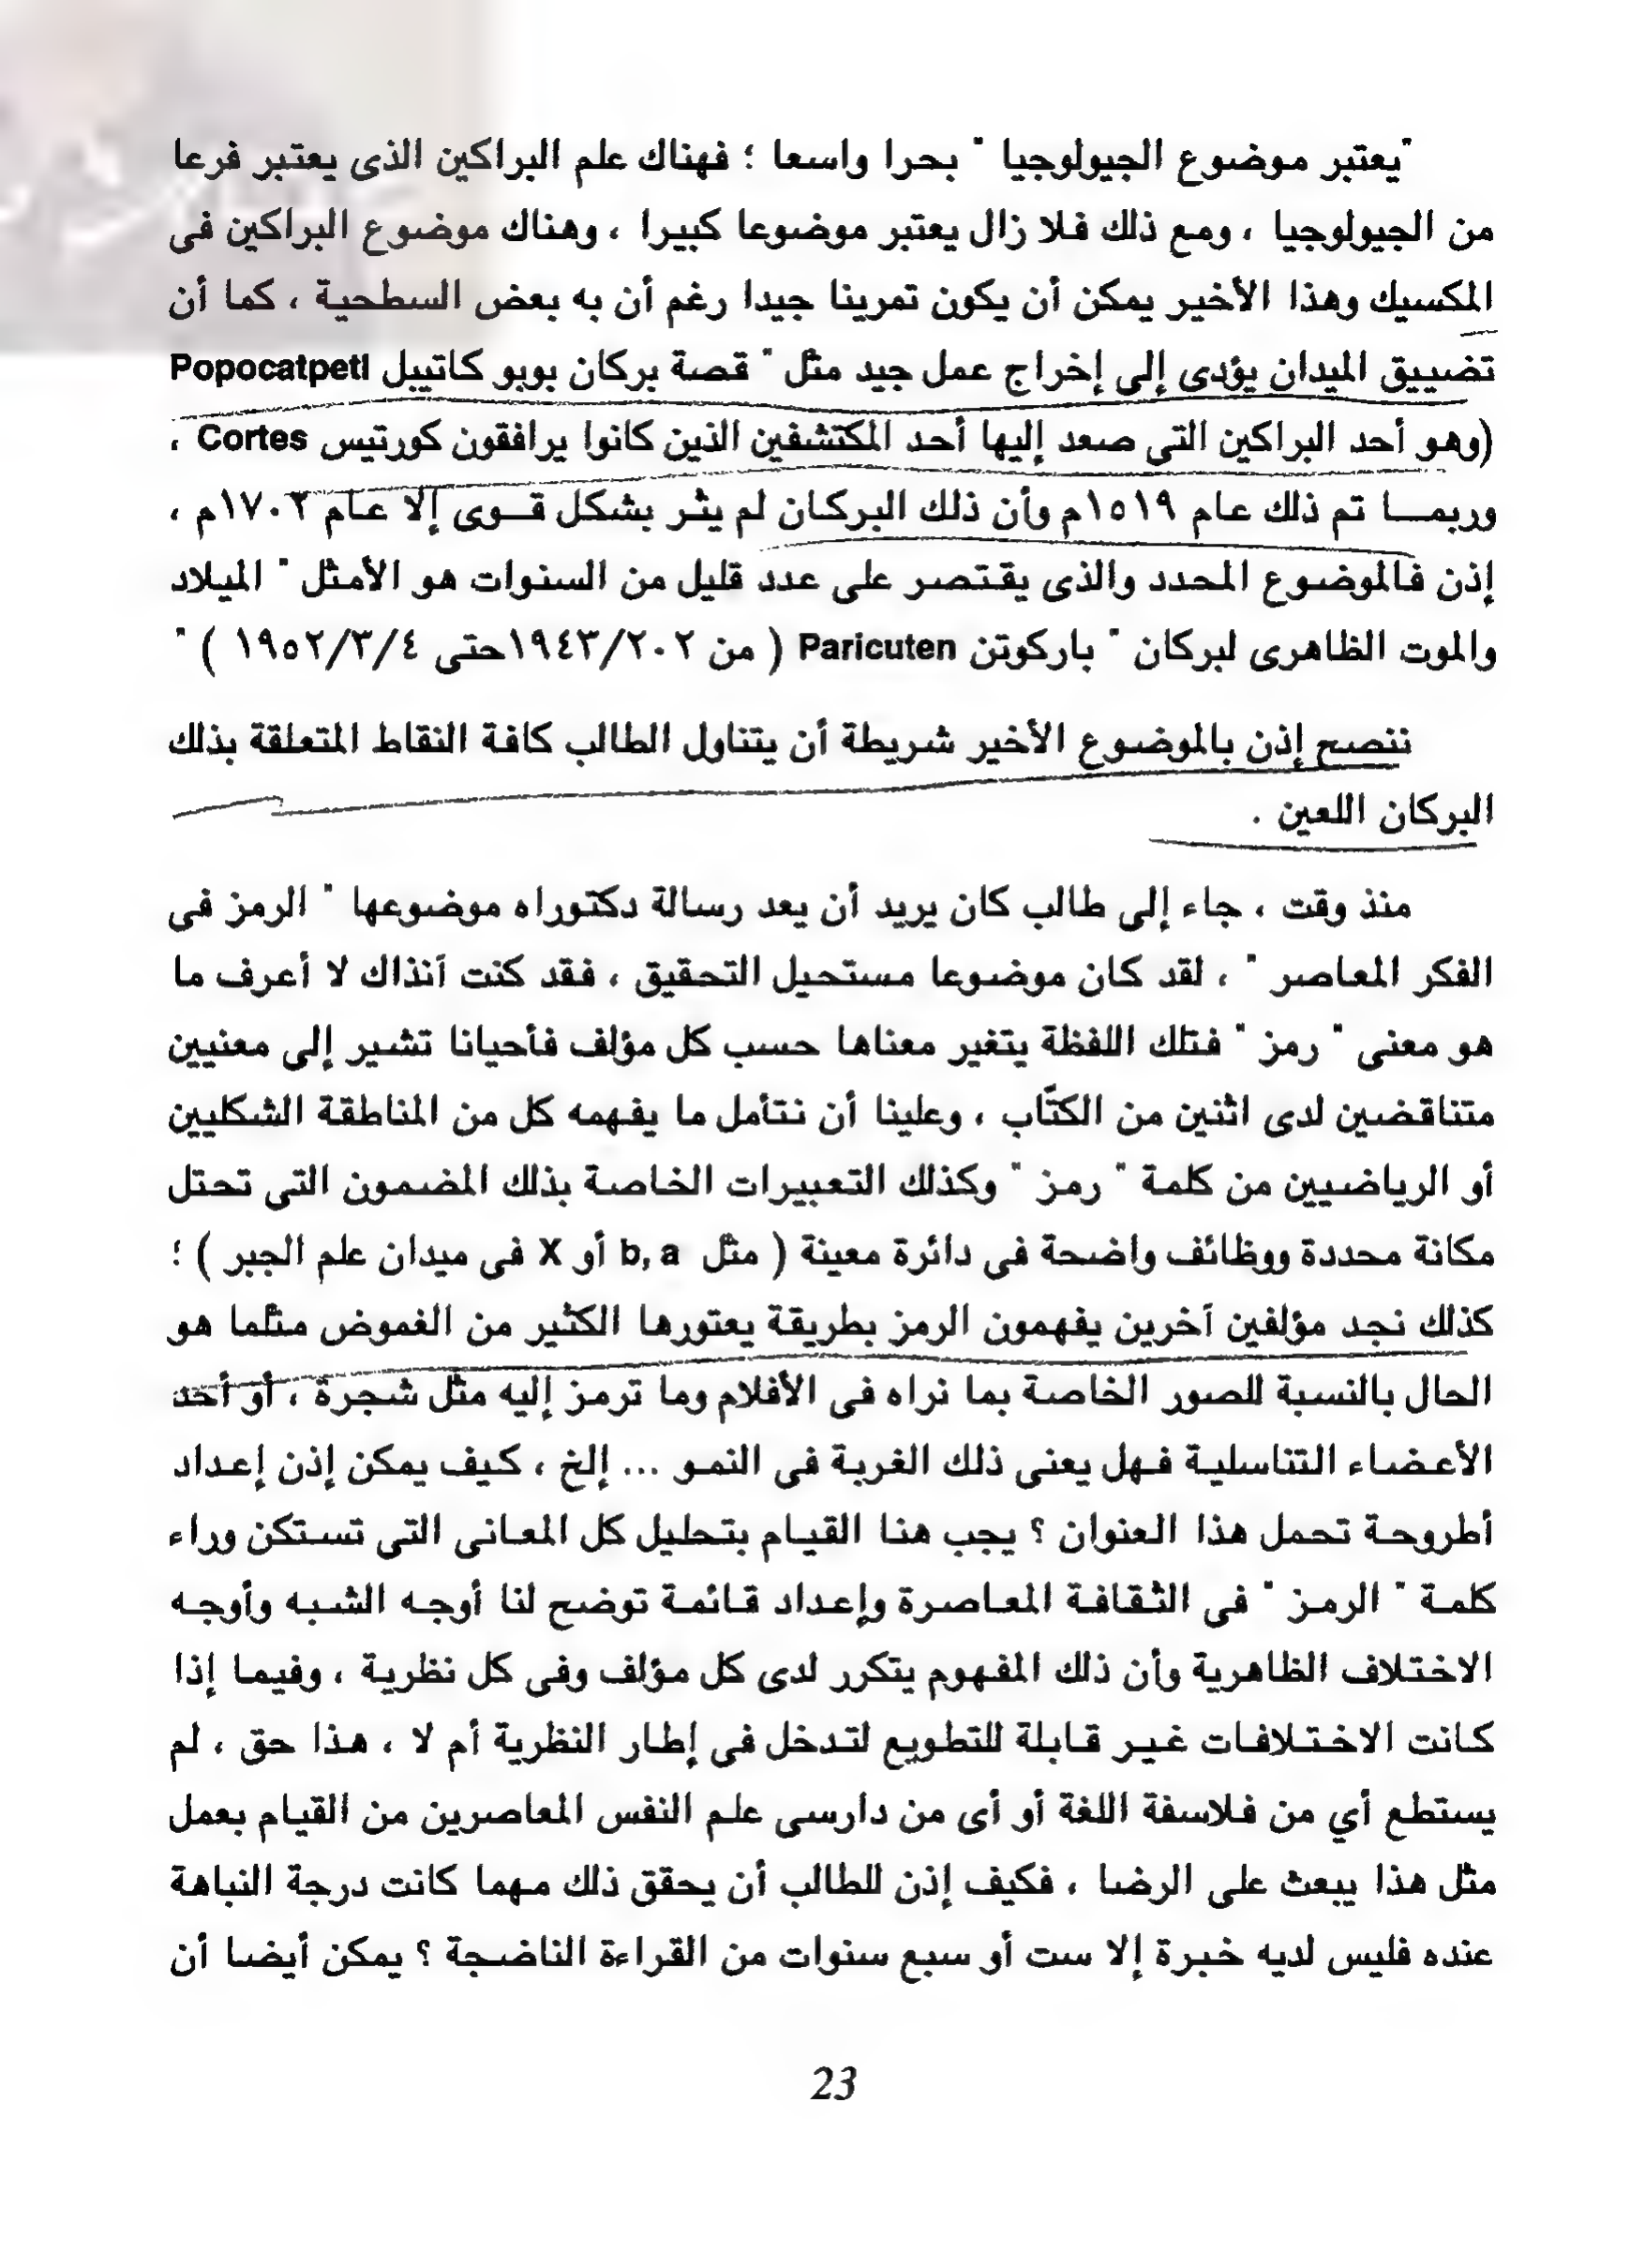 "يعتبر موضوع الجيولوجيا " بحرا واسعا ؛ فهناك علم البراكين الذى يعتبر فرعا
من الجيولوجيا ، ومع ذلك فلا زال يعتبر موضوعا كبيرا ، وهناك موضوع البراكين فى
المكسيك وهذا الأخير يمكن أن يكون تمرينا جيدا رغم أن به بعض السطحية ، كما أن
تضييق الميدان يؤدى إلى إخراج عمل جيد مثل " قصة بركان بوبو كاتيبل Popocatpetl
(وهو أحد البراكين التي صعد إليها أحد المكتشفين الذين كانوا يرافقون كورتيس Cortes ،
وربمـــا تم ذلك عام ١٥١٩م وأن ذلك البركان لم يثر بشكل قــوى إلا عام ١٧٠٢م ،
إذن فالموضوع المحدد والذى يقتصر على عدد قليل من السنوات هو الأمثل " الميلاد
والموت الظاهرى لبركان " باركوتن Paricuten ( من ١٩٤٣/٢٠٢حتى ١٩٥٢/٣/٤ ) "
ننصح إذن بالموضوع الأخير شريطة أن يتناول الطالب كافة النقاط المتعلقة بذلك
البركان اللعين .
منذ وقت ، جاء إلى طالب كان يريد أن يعد رسالة دكتوراه موضوعها " الرمز فى
الفكر المعاصر " ، لقد كان موضوعا مستحيل التحقيق ، فقد كنت آنذاك لا أعرف ما
هو معنى " رمز " فتلك اللفظة يتغير معناها حسب كل مؤلف فأحيانا تشير إلى معنيين
متناقضين لدى اثنين من الكتّاب ، وعلينا أن نتأمل ما يفهمه كل من المناطقة الشكليين
أو الرياضيين من كلمة " رمز " وكذلك التعبيرات الخاصة بذلك المضمون التى تحتل
مكانة محددة ووظائف واضحة فى دائرة معينة ( مثل b, a أو X فى ميدان علم الجبر ) ؛
كذلك نجد مؤلفين آخرين يفهمون الرمز بطريقة يعتورها الكثير من الغموض مثلما هو
الحال بالنسبة للصور الخاصة بما نراه فى الأفلام وما ترمز إليه مثل شجرة ، أو أحد
الأعضاء التناسلية فهل يعنى ذلك الغربة فى النمو ... إلخ ، كيف يمكن إذن إعداد
أطروحة تحمل هذا العنوان ؟ يجب هنا القيام بتحليل كل المعانى التى تستكن وراء
كلمة " الرمز " فى الثقافة المعاصرة وإعداد قائمة توضح لنا أوجه الشبه وأوجه
الاختلاف الظاهرية وأن ذلك المفهوم يتكرر لدى كل مؤلف وفى كل نظرية ، وفيما إذا
كانت الاختلافات غير قابلة للتطويع لتدخل فى إطار النظرية أم لا ، هذا حق ، لم
يستطع أي من فلاسفة اللغة أو أى من دارسى علم النفس المعاصرين من القيام بعمل
مثل هذا يبعث على الرضا ، فكيف إذن للطالب أن يحقق ذلك مهما كانت درجة النباهة
عنده فليس لديه خبرة إلا ست أو سبع سنوات من القراءة الناضجة ؟ يمكن أيضا أن
23